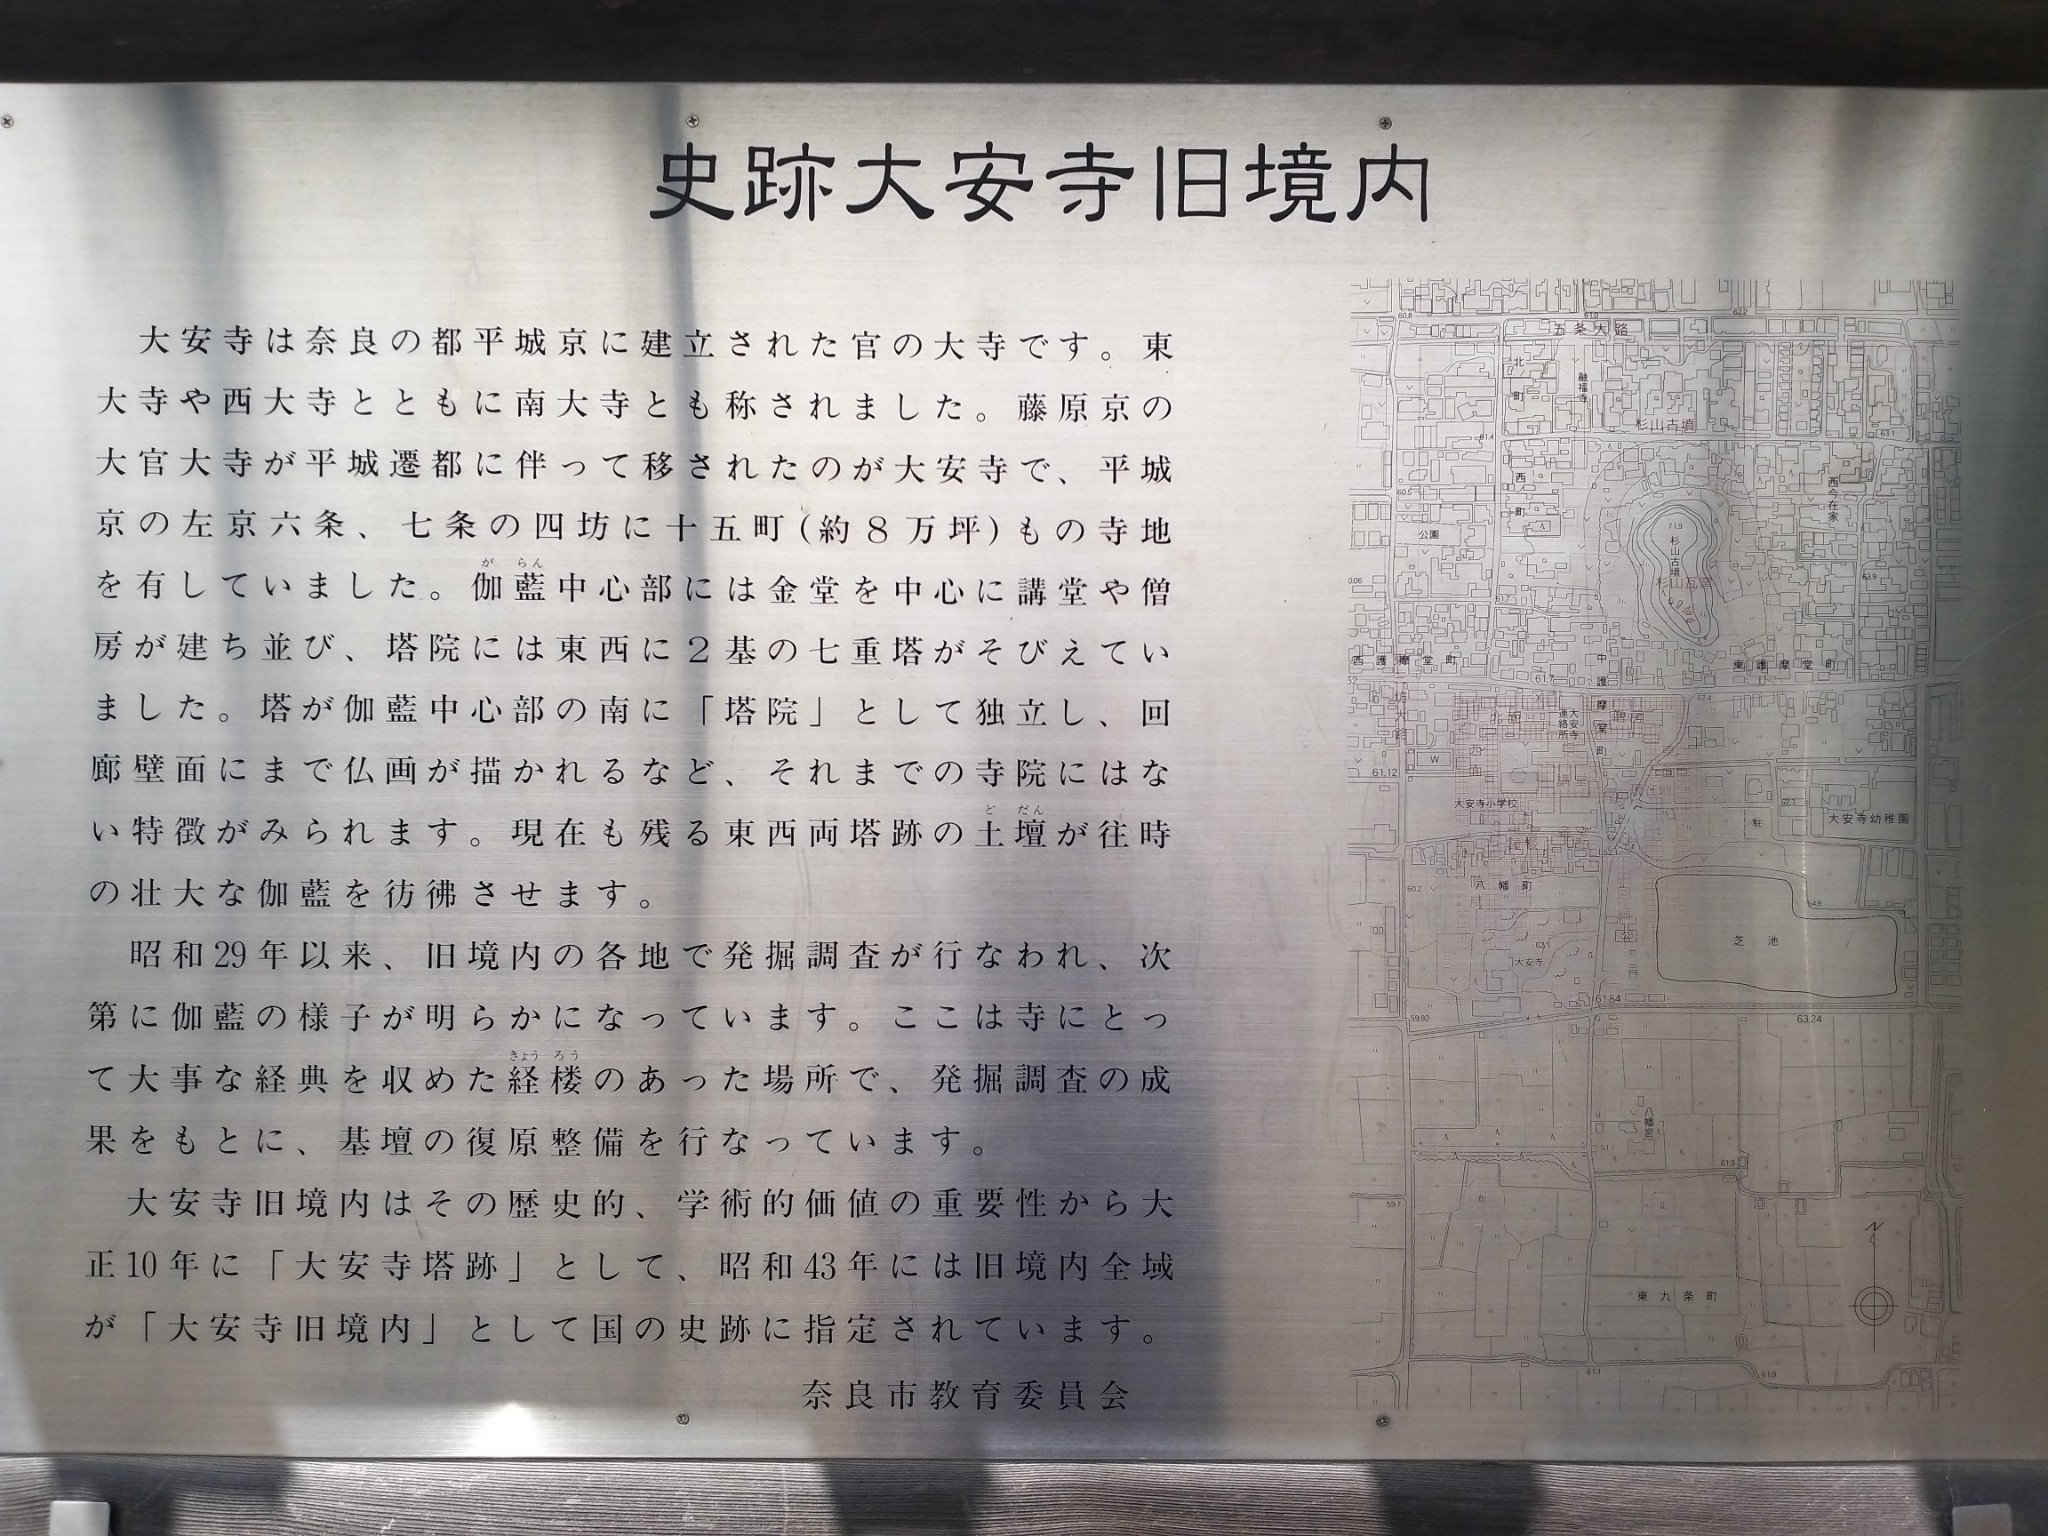 史跡大安寺旧境内
大安寺は奈良の都平城京に建立された官の大寺です。東
大寺や西大寺とともに南大寺とも称されました。藤原京の
大官大寺が平城遷都に伴って移されたのが大安寺で、平城
京の左京六条、七条の四坊に十五町(約8万坪)もの寺地
がらん
を有していました。伽藍中心部には金堂を中心に講堂や僧
房が建ち並び、塔院には東西に2基の七重塔がそびえてい
ました。塔が伽藍中心部の南に「塔院」として独立し、回
廊壁面にまで仏画が描かれるなど、それまでの寺院にはな
どだん
い特徴がみられます。現在も残る東西両塔跡の土壇が往時
の壮大な伽藍を彷彿させます。
昭和29年以来、旧境内の各地で発掘調査が行なわれ、次
第に伽藍の様子が明らかになっています。ここは寺にとっ
きょうろう
て大事な経典を収めた経楼のあった場所で、発掘調査の成
果をもとに、基壇の復原整備を行なっています。
大安寺旧境内はその歴史的、学術的価値の重要性から大
正10年に「大安寺塔跡」として、昭和43年には旧境内全域
が「大安寺旧境内」として国の史跡に指定されています。
奈良市教育委員会
五条大路
北
町
融福寺
杉山古墳
西
町
西今在家
公園
71.9
杉山古墳
杉山瓦窯
西護摩堂町
中護摩堂町
東護摩堂町
61.7
62.4
大安寺
連絡所
W
61.12
講堂
大安寺小学校
大安寺幼稚園
八幡町
60.2
芝池
大安寺
61.84
59.92
63.24
八幡宮
61.9
59.7
N
東九条町
61.1
61.9